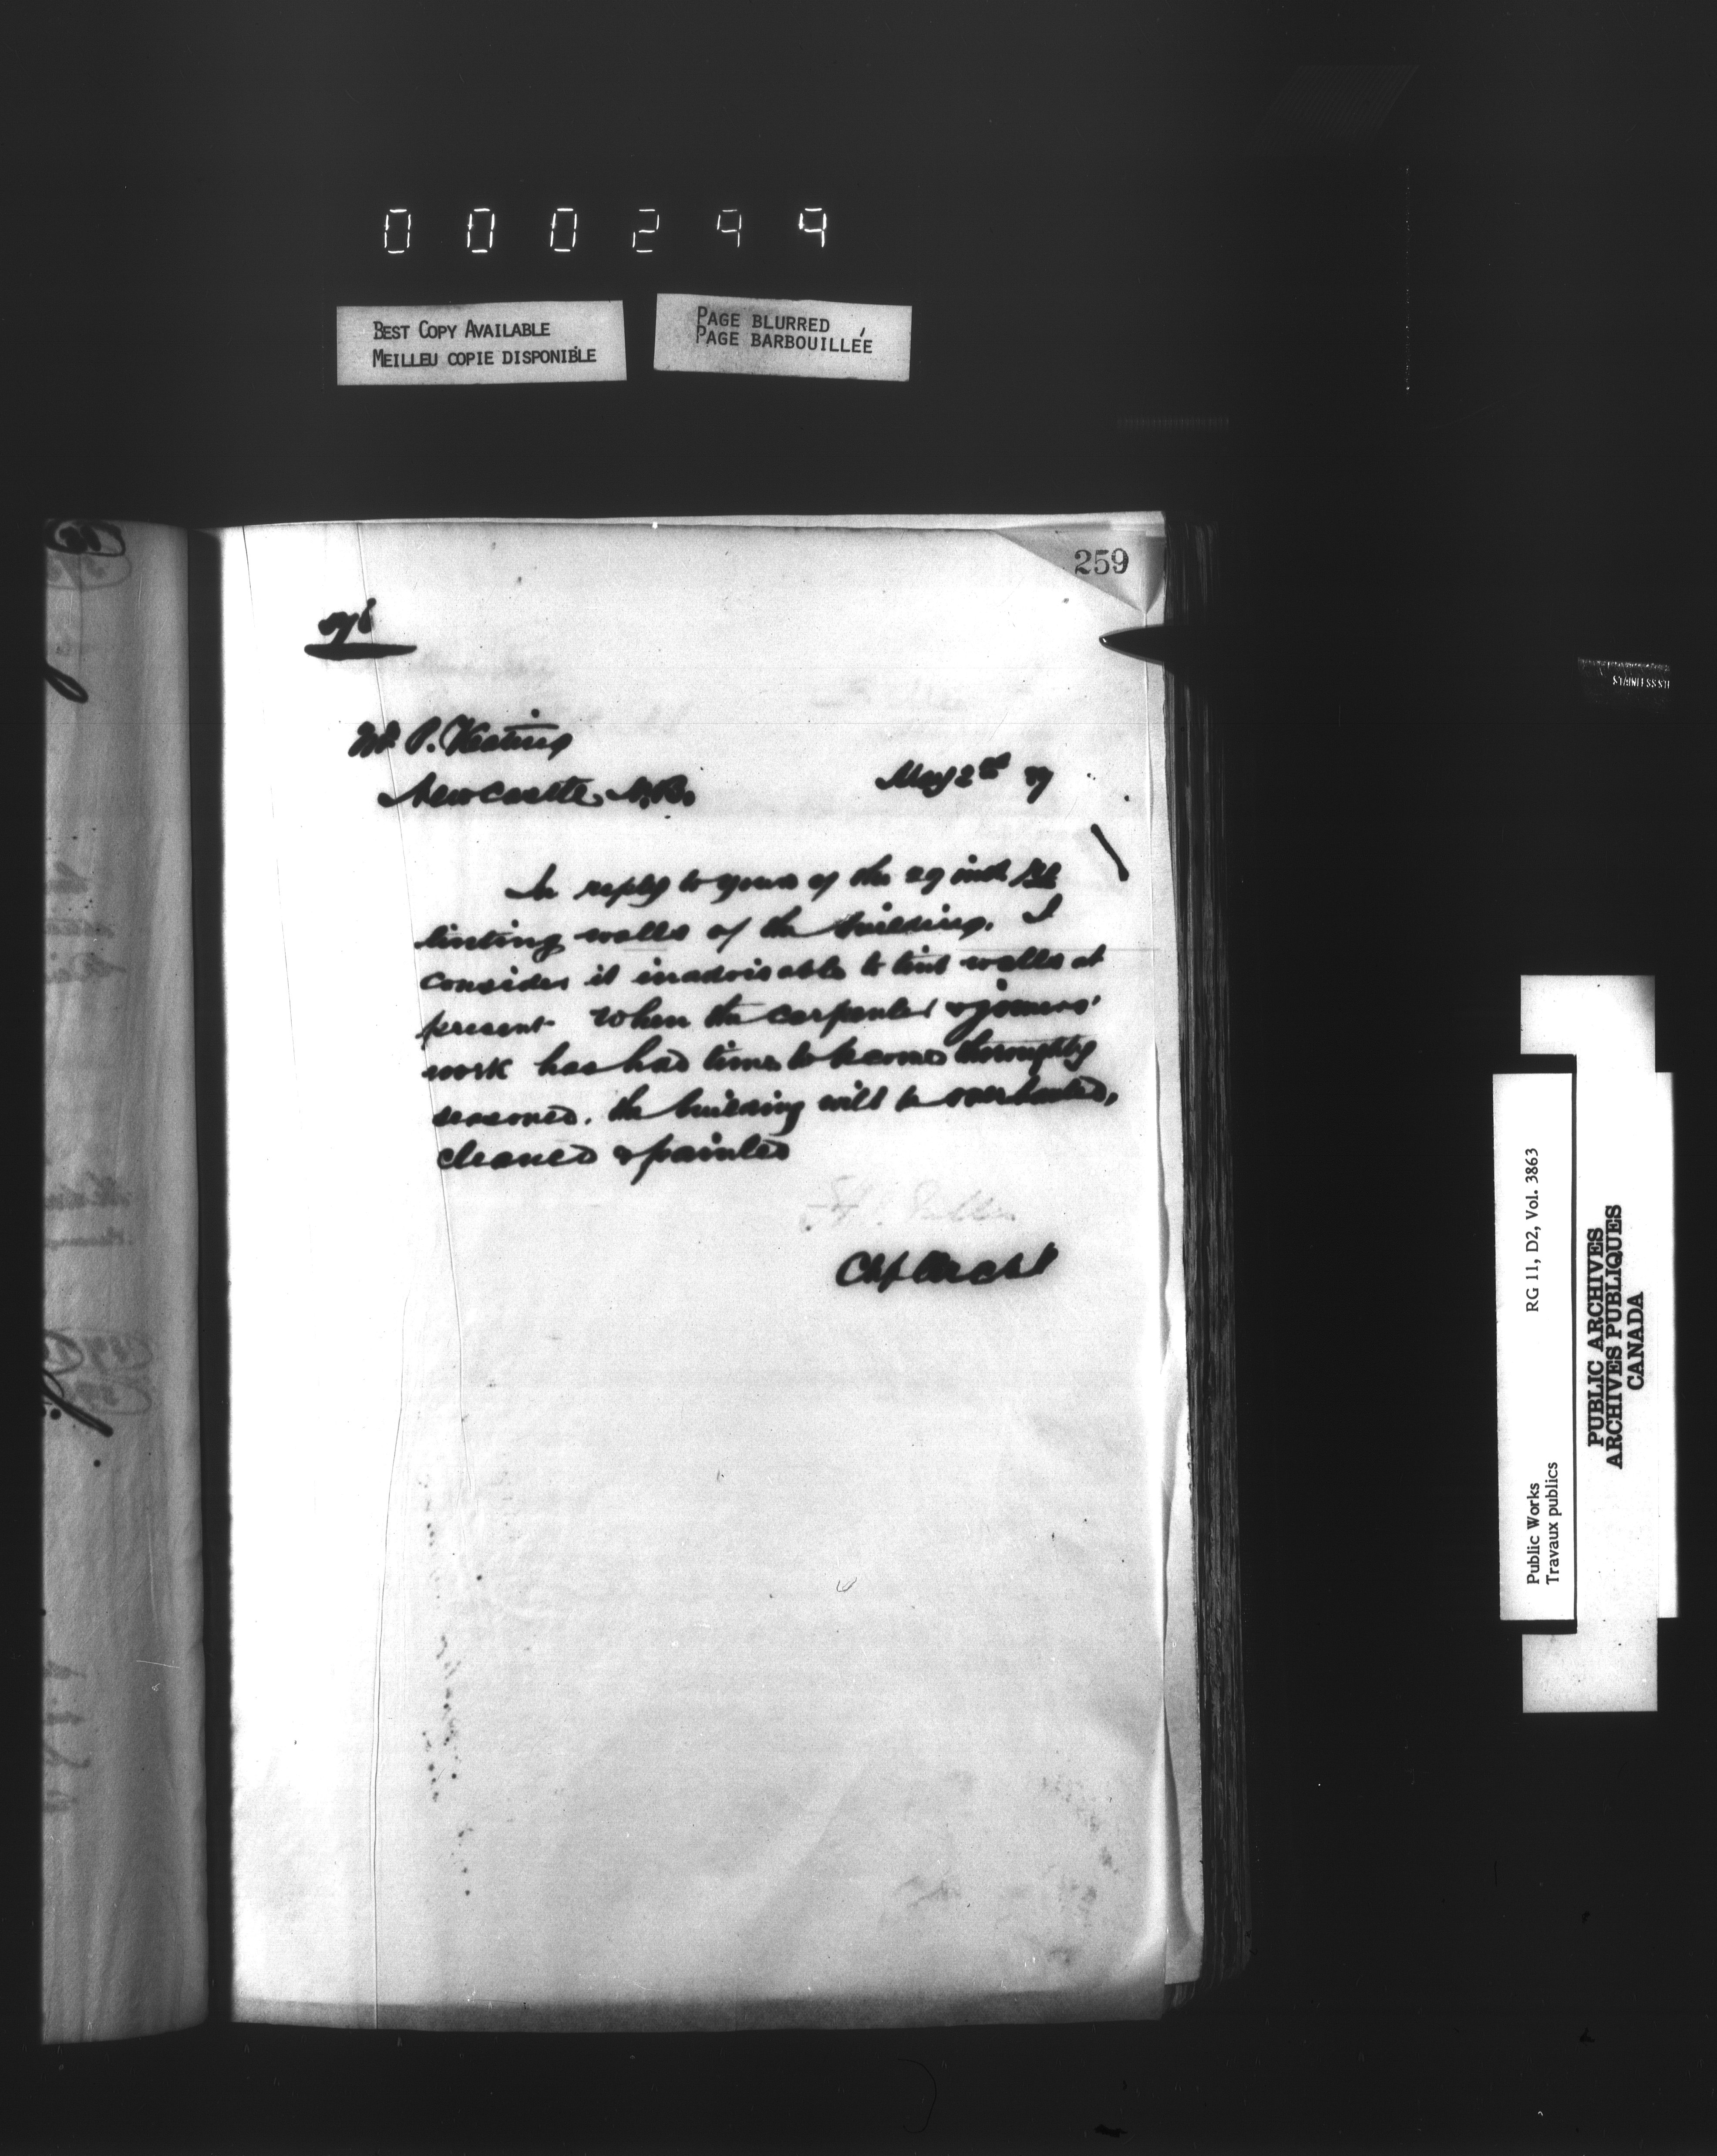 000299
BEST COPY AVAILABLE
MEILLEU COPIE DISPONIBLE
PAGE BLURRED
PAGE BARBOUILLÉE
259
P. Keating
Newcastle, N.B.
May 2nd 87
In reply to yours of the 29 inst. re
tinting walls of the building. I
consider it inadvisable to tint walls at
present. When the carpenter & joiners'
work has had time to become thoroughly
seasoned, the building will be overhauled,
cleaned & painted
Chf Archt
Public Works
Travaux publics
RG 11, D2, Vol. 3863
PUBLIC ARCHIVES
ARCHIVES PUBLIQUES
CANADA